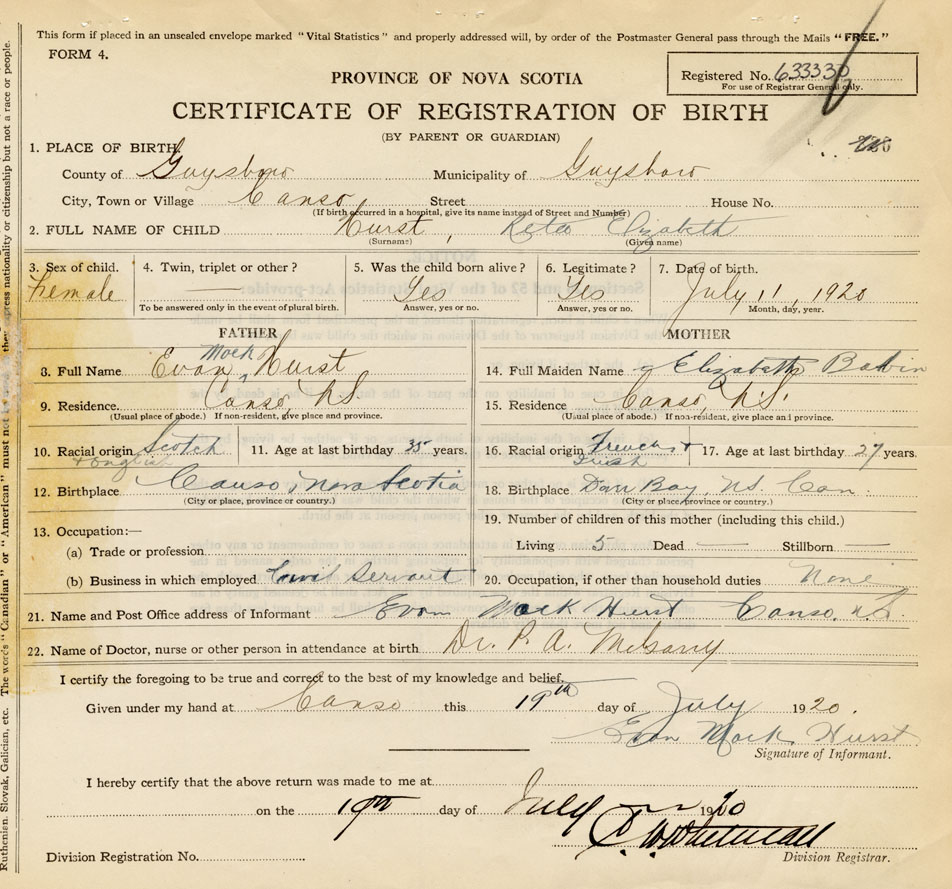 This form if placed in an unsealed envelope marked "Vital Statistics" and properly addressed will, by order of the Postmaster General pass through the Mails "FREE."
FORM 4.
Registered No. 633330
For use of Registrar General only.
PROVINCE OF NOVA SCOTIA
CERTIFICATE OF REGISTRATION OF BIRTH
(BY PARENT OR GUARDIAN)
1. PLACE OF BIRTH
County of Guysboro Municipality of Guysboro
City, Town or Village Canso Street House No.
(If birth occurred in a hospital, give its name instead of Street and Number)
2. FULL NAME OF CHILD Hurst, Reta Elizabeth
(Surname) (Given name)
3. Sex of child. 4. Twin, triplet or other? 5. Was the child born alive? 6. Legitimate? 7. Date of birth.
Female — Yes Yes July 11, 1920
To be answered only in the event of plural birth. Answer, yes or no. Answer, yes or no. Month, day, year.
FATHER MOTHER
8. Full Name Evan Mack Hurst 14. Full Maiden Name Elizabeth
9. Residence Canso N.S. 15. Residence Canso, N.S.
(Usual place of abode.) If non-resident, give place and province. (Usual place of abode.) If non-resident, give place and province.
10. Racial origin Scotch + English 11. Age at last birthday 35 years. 16. Racial origin French + Irish 17. Age at last birthday 27 years.
12. Birthplace Canso, Nova Scotia 18. Birthplace Bay, NS. Can.
(City or place, province or country.) (City or place, province or country.)
13. Occupation:— 19. Number of children of this mother (including this child.)
(a) Trade or profession Living 5 Dead — Stillborn —
(b) Business in which employed Civil Servant 20. Occupation, if other than household duties None
21. Name and Post Office address of Informant Evan Mack Hurst Canso, N.S.
22. Name of Doctor, nurse or other person in attendance at birth Dr. P. A. McGarry
I certify the foregoing to be true and correct to the best of my knowledge and belief.
Given under my hand at Canso this 19th day of July 1920.
Evan Mack Hurst
Signature of Informant.
I hereby certify that the above return was made to me at
on the 19th day of July 1920
Division Registration No. Division Registrar.
Ruthenian, Slovak, Galician, etc. The words "Canadian" or "American" must not be express nationality or citizenship but not a race or people.